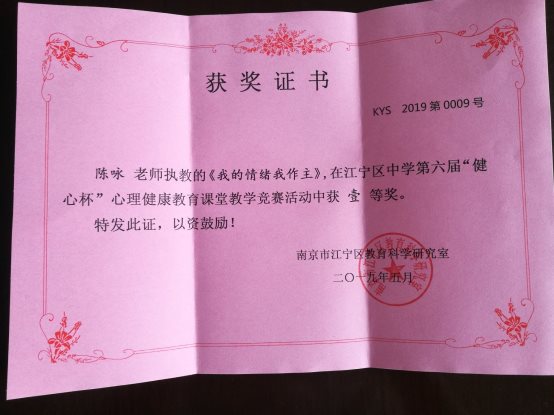 获奖证书
KYS 2019第0009号
陈咏 老师执教的《我的情绪我作主》,在江宁区中学第六届“健
心杯”心理健康教育课堂教学竞赛活动中获 壹 等奖。
特发此证，以资鼓励！
南京市江宁区教育科学研究室
二〇一九年五月